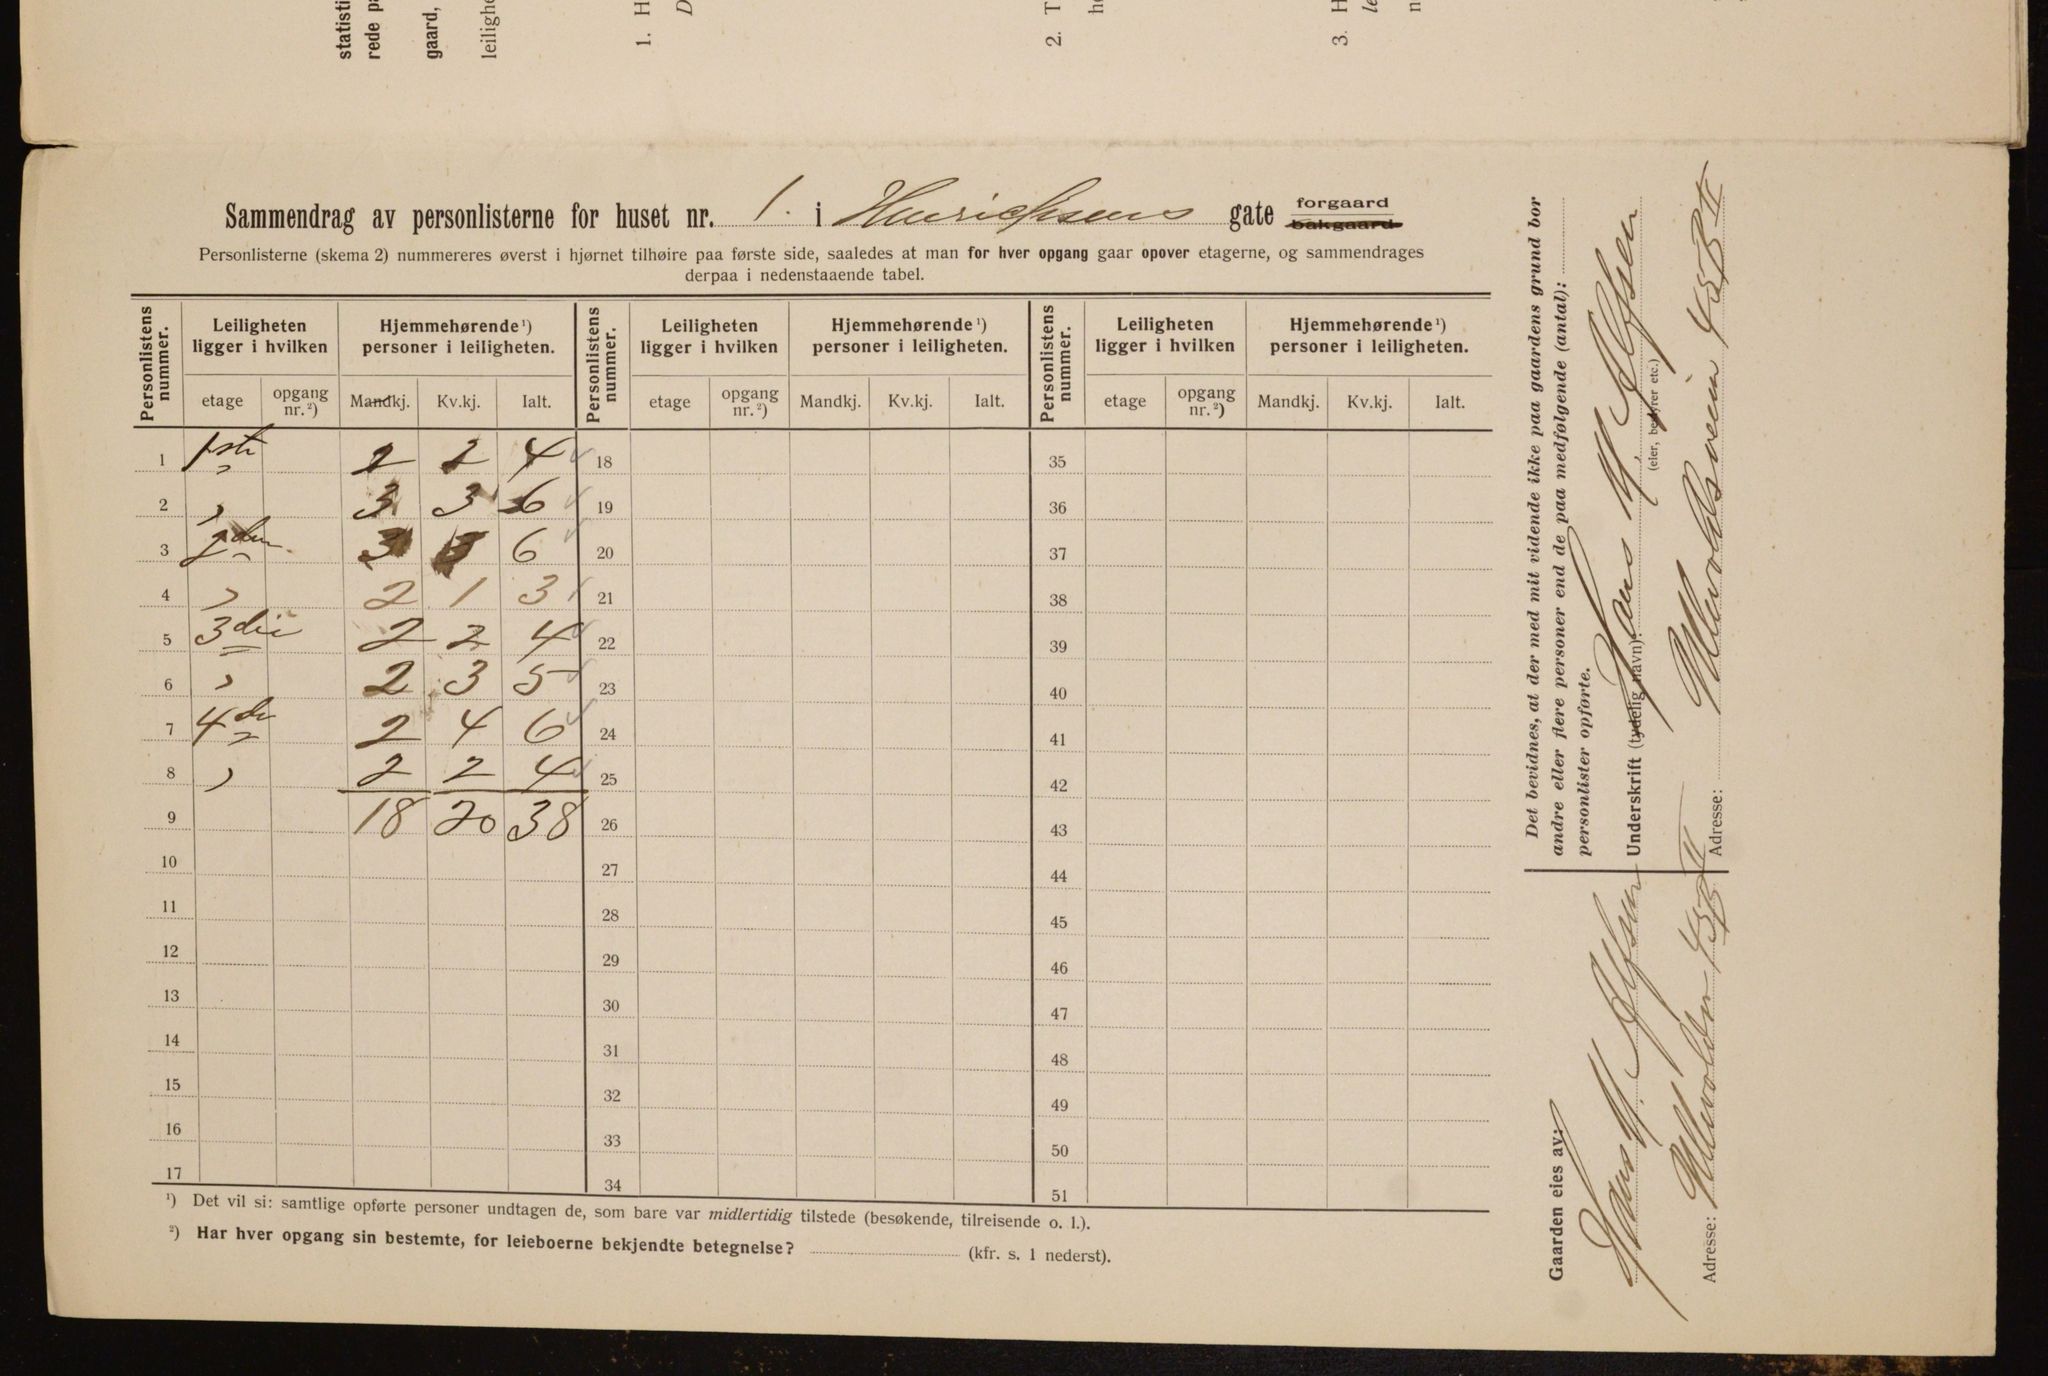 statisti
rede pa
gaard,
leilighe
1. H
D
2. T
he
3. H
le
n
Sammendrag av personlisterne for huset nr. 1. i Henrichsens gate forgaard
bakgaard
Personlisterne (skema 2) nummereres øverst i hjørnet tilhøire paa første side, saaledes at man for hver opgang gaar opover etagerne, og sammendrages
derpaa i nedenstaaende tabel.
Personlistens nummer. Leiligheten ligger i hvilken Hjemmehørende ¹) personer i leiligheten. Personlistens nummer. Leiligheten ligger i hvilken Hjemmehørende ¹) personer i leiligheten. Personlistens nummer. Leiligheten ligger i hvilken Hjemmehørende ¹) personer i leiligheten.
etage opgang nr. ²) Mandkj. Kv.kj. Ialt. etage opgang nr. ²) Mandkj. Kv.kj. Ialt. etage opgang nr. ²) Mandkj. Kv.kj. Ialt.
1 1ste 2 2 4 18 35
2 " 3 3 6 19 36
3 2den 3 3 6 20 37
4 " 2 1 3 21 38
5 3die 2 2 4 22 39
6 " 2 3 5 23 40
7 4de 2 4 6 24 41
8 " 2 2 4 25 42
9 18 20 38 26 43
10 27 44
11 28 45
12 29 46
13 30 47
14 31 48
15 32 49
16 33 50
17 34 51
¹) Det vil si: samtlige opførte personer undtagen de, som bare var midlertidig tilstede (besøkende, tilreisende o. l.).
²) Har hver opgang sin bestemte, for leieboerne bekjendte betegnelse? (kfr. s. 1 nederst).
Det bevidnes, at der med mit vidende ikke paa gaardens grund bor
andre eller flere personer end de paa medfølgende (antal):
personlister opførte.
Underskrift (tydelig navn): Hans M. Alfsen
(eier, bestyrer etc.)
Adresse: 45 B II
Gaarden eies av:
Hans M. Alfsen
Adresse: 45 B II